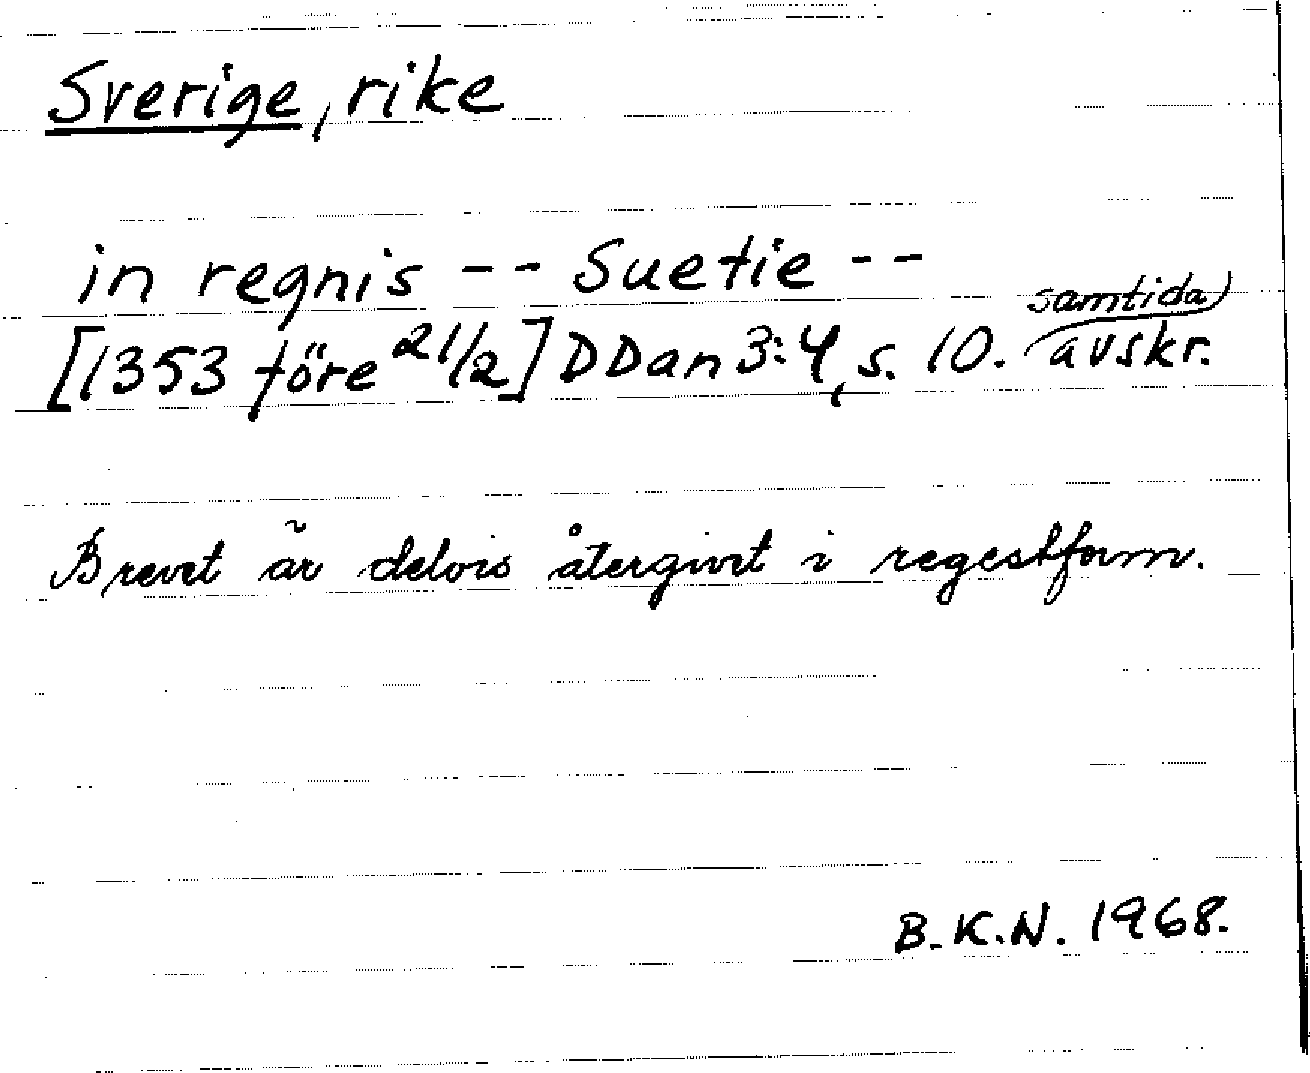 Sverige, rike
in regnis -- Suetie --
[1353 före 21/2] DDan 3:4, s. 10. samtida avskr.
Brevet är delvis återgivet i regestform.
B.K.N. 1968.